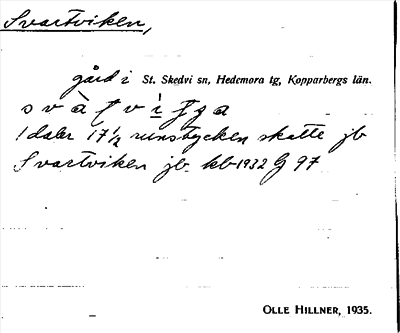 Svartviken,
gård i St. Skedvi sn, Hedemora tg, Kopparbergs län.
1 daler 17 1/2 runstycken skatte jb
Svartviken jb kb 1932 G 97
OLLE HILLNER, 1935.